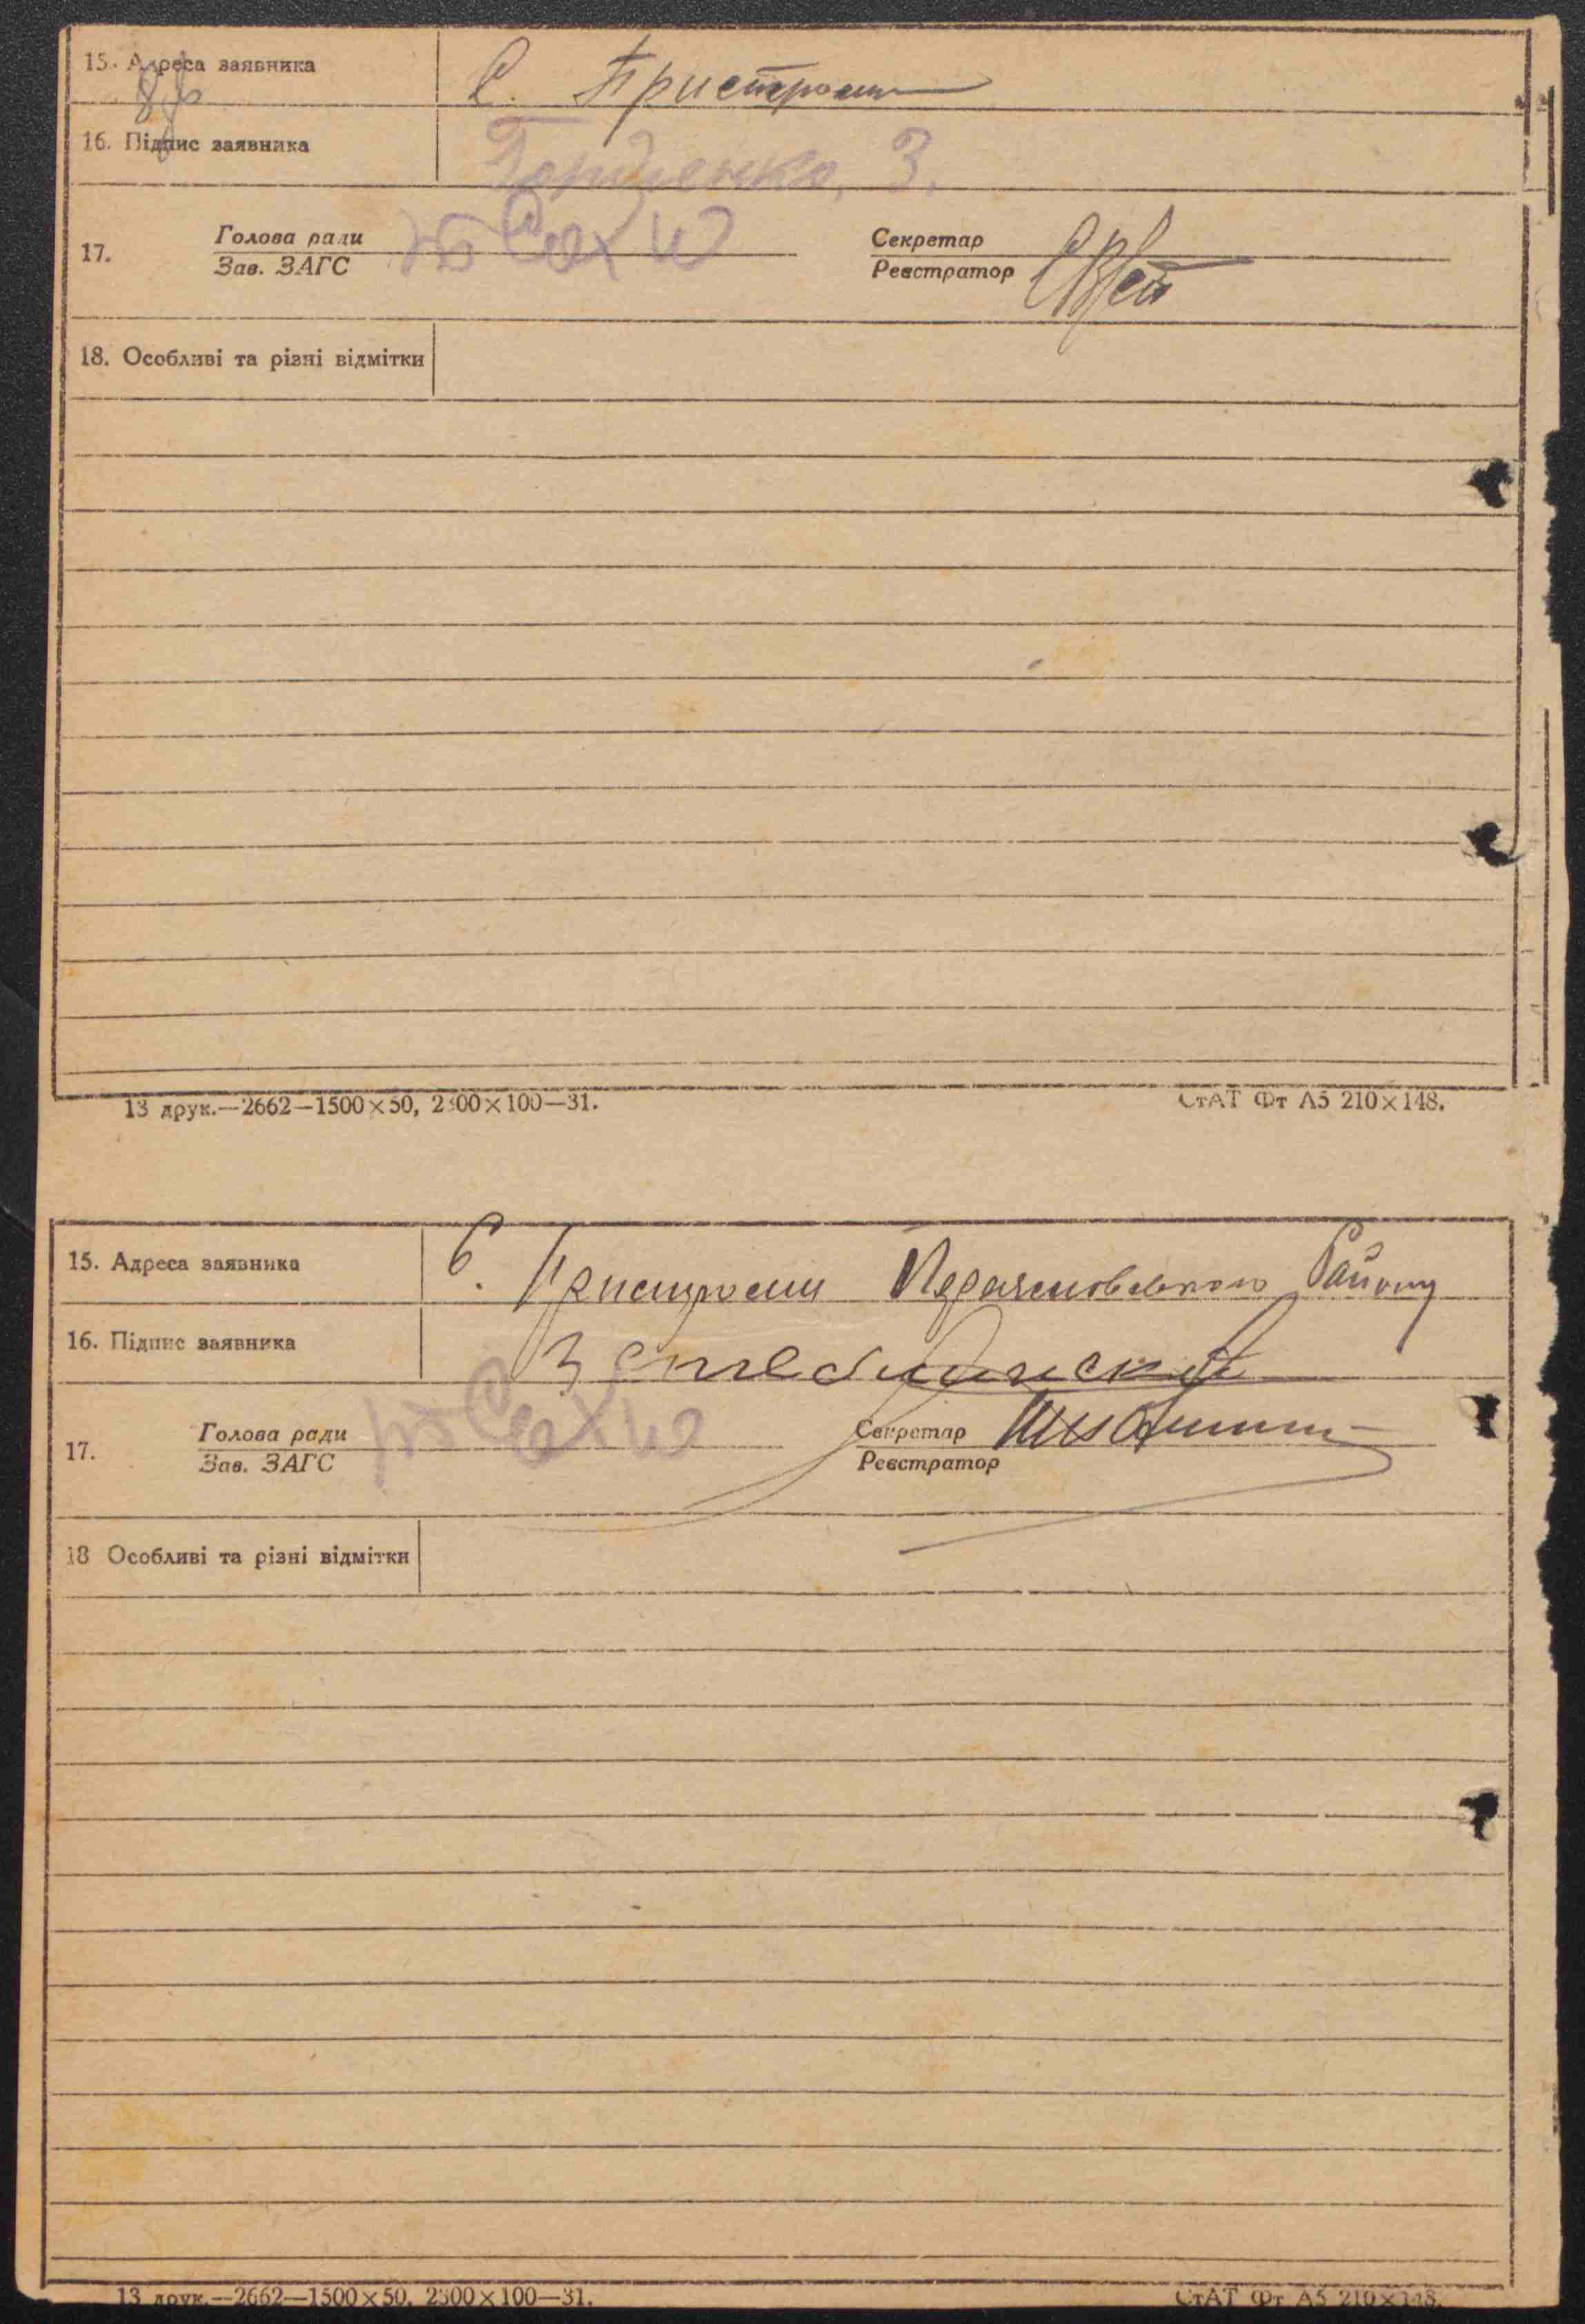 15. Адреса заявника С. Пристроми
86
16. Підпис заявника Гордиенко, З.
17. Голова ради
Зав. ЗАГС
Секретар
Реєстратор
18. Особливі та різні відмітки
13 друк.—2662—1500×50, 2300×100—31. СтАТ Фт А5 210×148.
15. Адреса заявника С. Пристроми Переясловського Району
16. Підпис заявника
17. Голова ради
Зав. ЗАГС
Секретар
Реєстратор
18 Особливі та різні відмітки
13 друк.—2662—1500×50, 2300×100—31. СтАТ Фт А5 210×148.